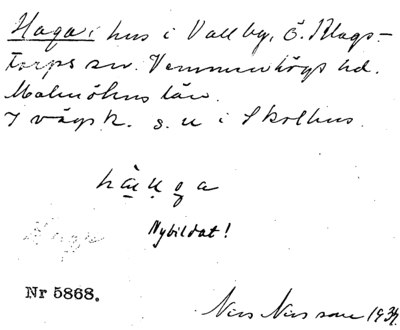 Haga i hus i Vallby, Ö. Klags-
torps sn. Vemmenhögs hd.
Malmöhus län.
I vägsk. s. u i Skolhus.
Nybildat!
Haga
Nr 5868.
Nils Nilsson 193